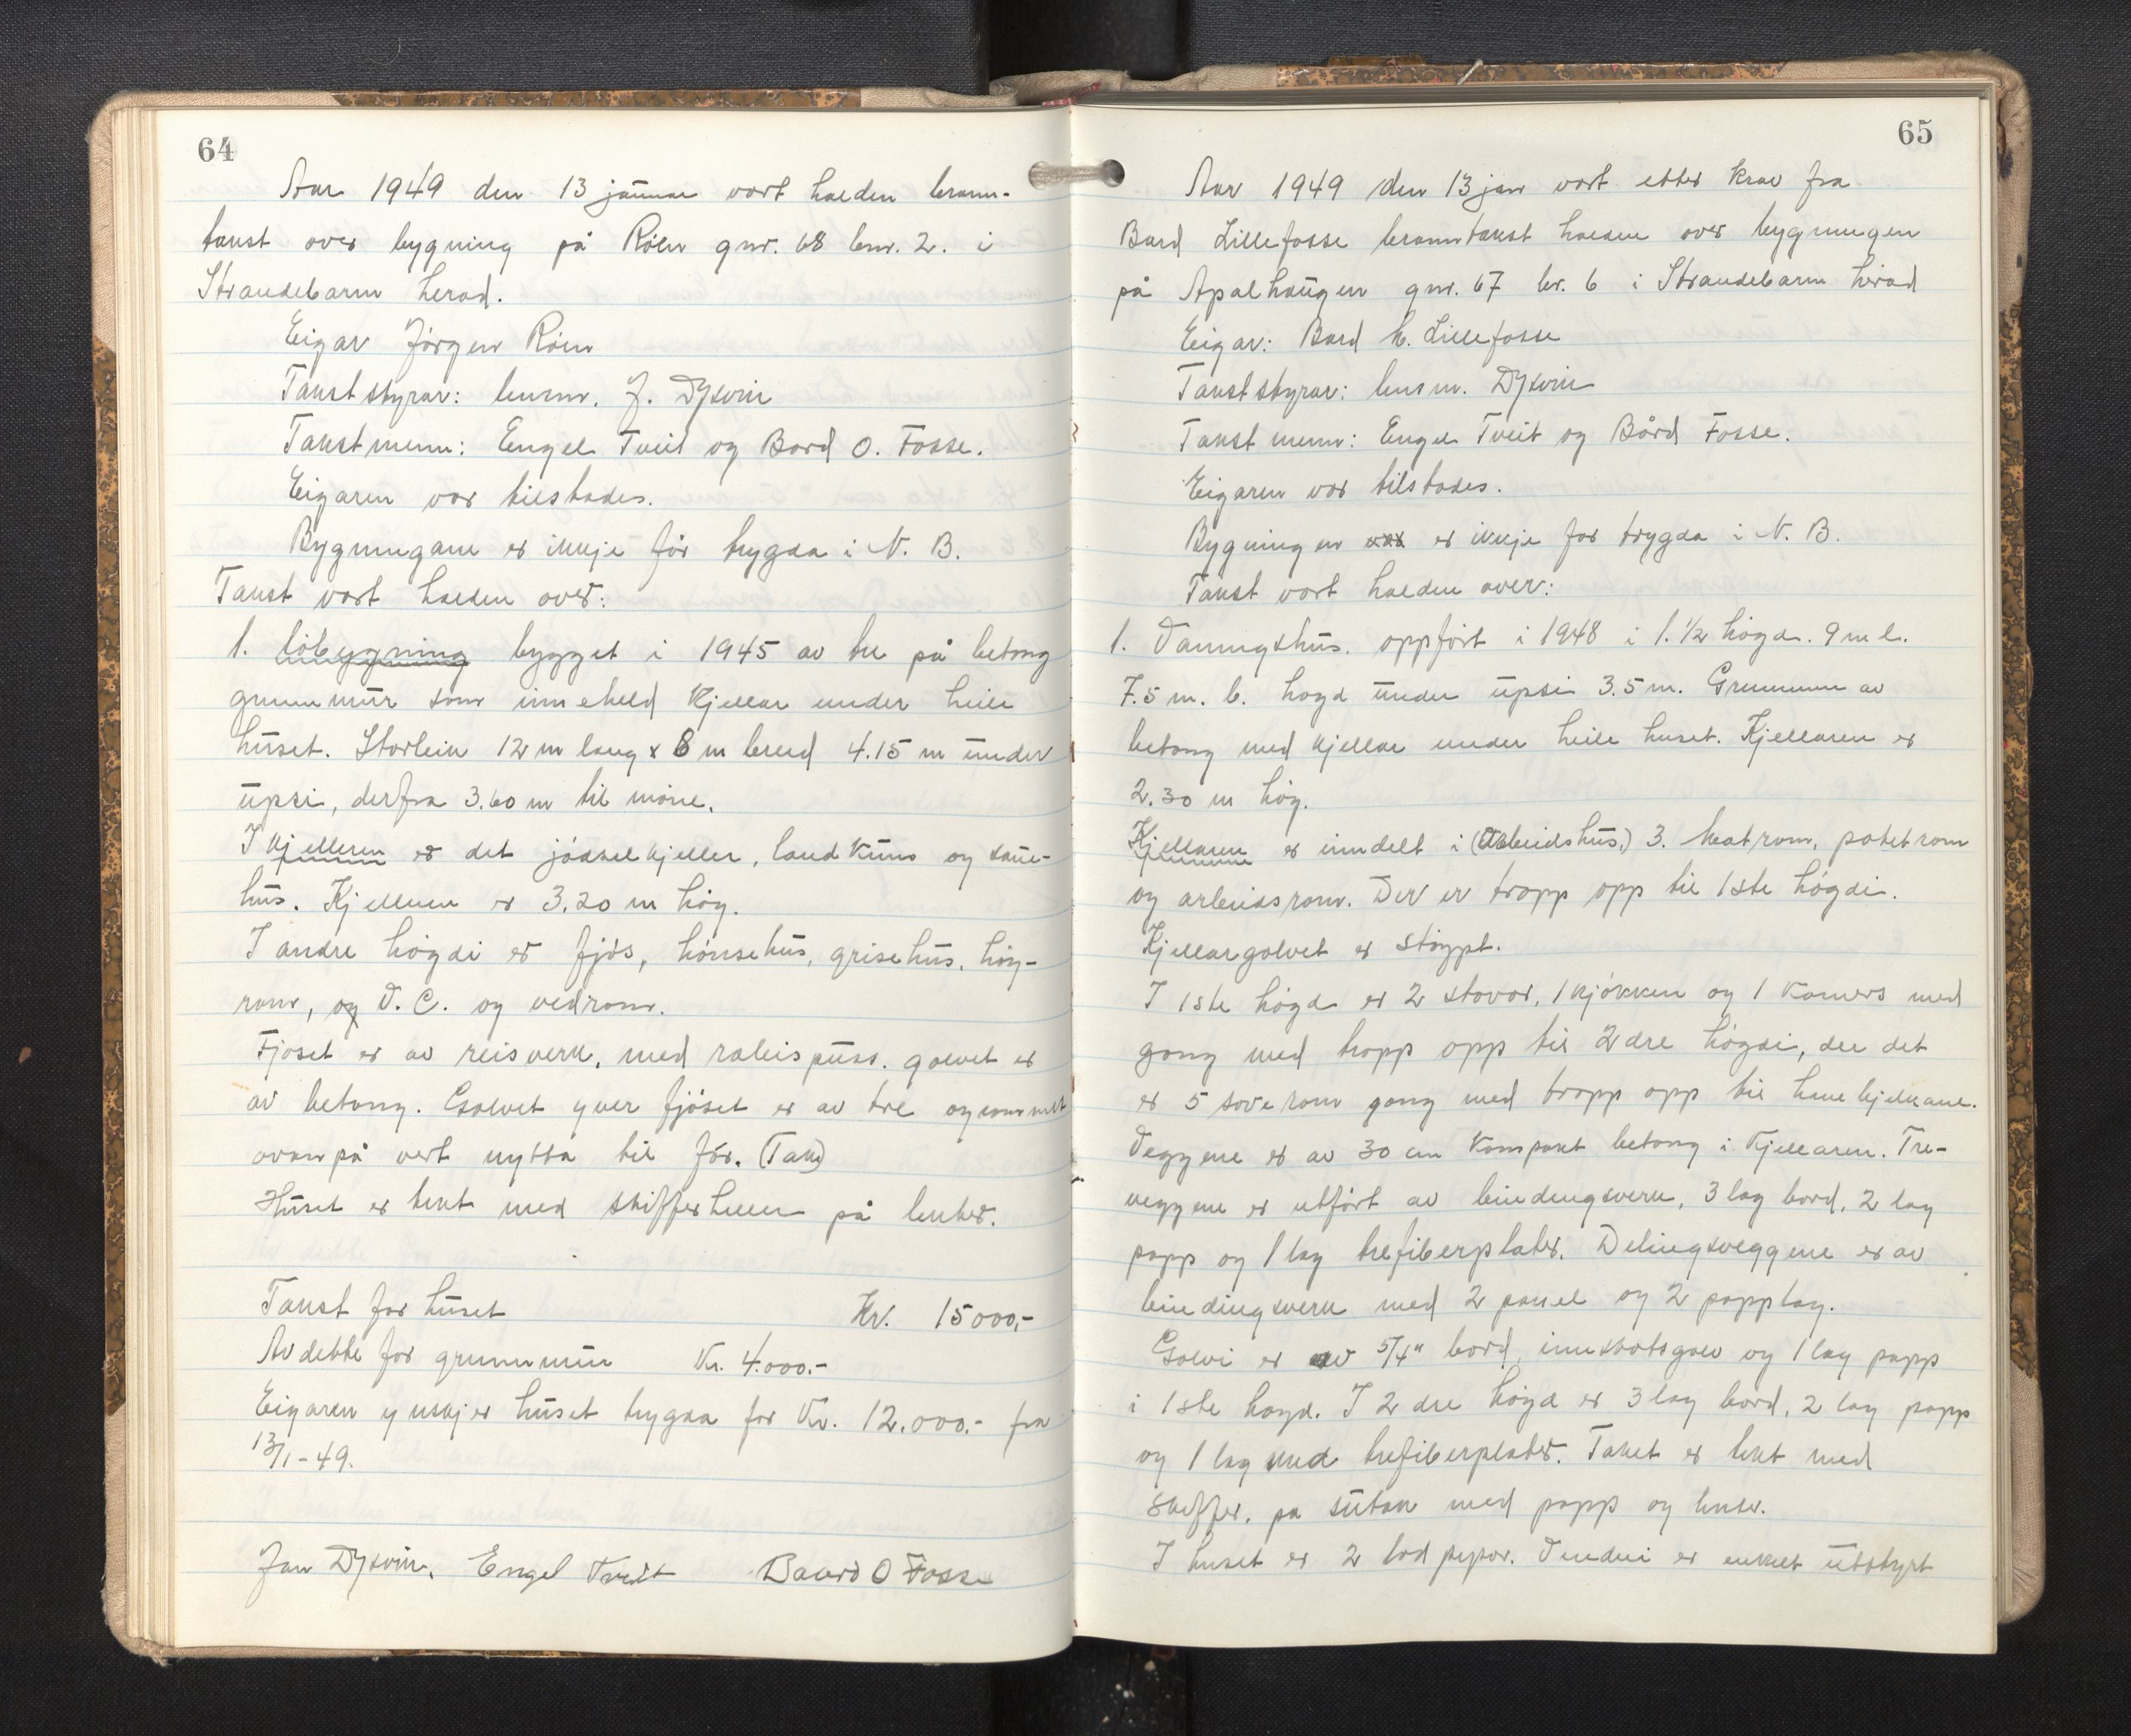 64
Aar 1949 den 13 januar vart halden brann-
takst over bygning på Röen gnr. 68 bnr. 2. i
Strandebarm herad.
Eigar Jörgen Röen
Takststyrar: lensm. J. Dysvin
Takstmenn: Engel Tveit og Bård O. Fosse.
Eigaren var tilstades.
Bygningane er ikkje för trygda i N. B.
Takst vart halden over:
1. Löbygning bygget i 1945 av tre på betong
grunnmur som inneheld Kjellar under heile
huset. Storleik 12 m lang x 8 m breid 4.15 m under
upsi, derfra 3.60 m til möne.
I kjelleren er det jödselkjeller, landkum og saue-
hus. Kjelleren er 3.20 m høy.
I andre högdi er fjös, hönsehus, grisehus, höy-
rom, og V. C. og vedrom.
Fjöset er av reisverk, med rabispuss. golvet er
av betong. Golvet yver fjöset er av tre og rommet
ovanpå vert nytta til fór. (Tak)
Huset er tekt med skifferheller på lekter.
Takst for huset Kr. 15000,-
Av dette for grunnmur Kr. 4.000.-
Eigaren ynskjer huset trygda for Kr. 12.000.- fra
13/1-49.
Jan Dysvin. Engel Tveit Baard O Fosse
65
Aar 1949 den 13 jan vart etter krav fra
Bard Lillefosse branntakst halden over bygningen
på Apalhaugen gnr. 67 br. 6 i Strandebarm herad
Eigar: Bard K. Lillefosse
Takststyrar: lensm. Dysvin
Takstmenn: Engel Tveit og Bård Fosse.
Eigaren var tilstades.
Bygningen var er ikkje for trygda i N. B.
Takst vart halden over:
1. Vaaningshus. oppfört i 1948 i 1. 1/2 högd. 9 m l.
7.5 m. b. hogd under upsi 3.5 m. Grunnmur av
betong med kjellar under heile huset. Kjellaren er
2.30 m høg.
Kjellaren er inndelt i (Arbeidshus,) 3. matrom, potetrom
og arbeidsrom. Der er tropp opp til 1ste högdi.
Kjellargolvet er stöypt.
I 1ste högd er 2 stovor, 1 kjökken og 1 Kamers med
gang med tropp opp til 2dre högdi, der det
er 5 soverom gang med tropp opp til hanebjelkane.
Veggene er av 30 cm Kompakt betong i Kjellaren. Tre-
veggene er utfört av bindingsverk, 3 lag bord, 2 lag
papp og 1 lag trefiberplater. Delingsveggene er av
bindingsverk med 2 panel og 2 papplag.
Golvi er av 5/4" bord, innskotsgolv og 1 lag papp
i 1ste hogd. I 2dre högd er 3 lag bord, 2 lag papp
og 1 lag med trefiberplater. Taket er tekt med
skiffer. pa sutak med papp og lekter.
I huset er 2 lodpipor. Vindui er enkelt utstyrt